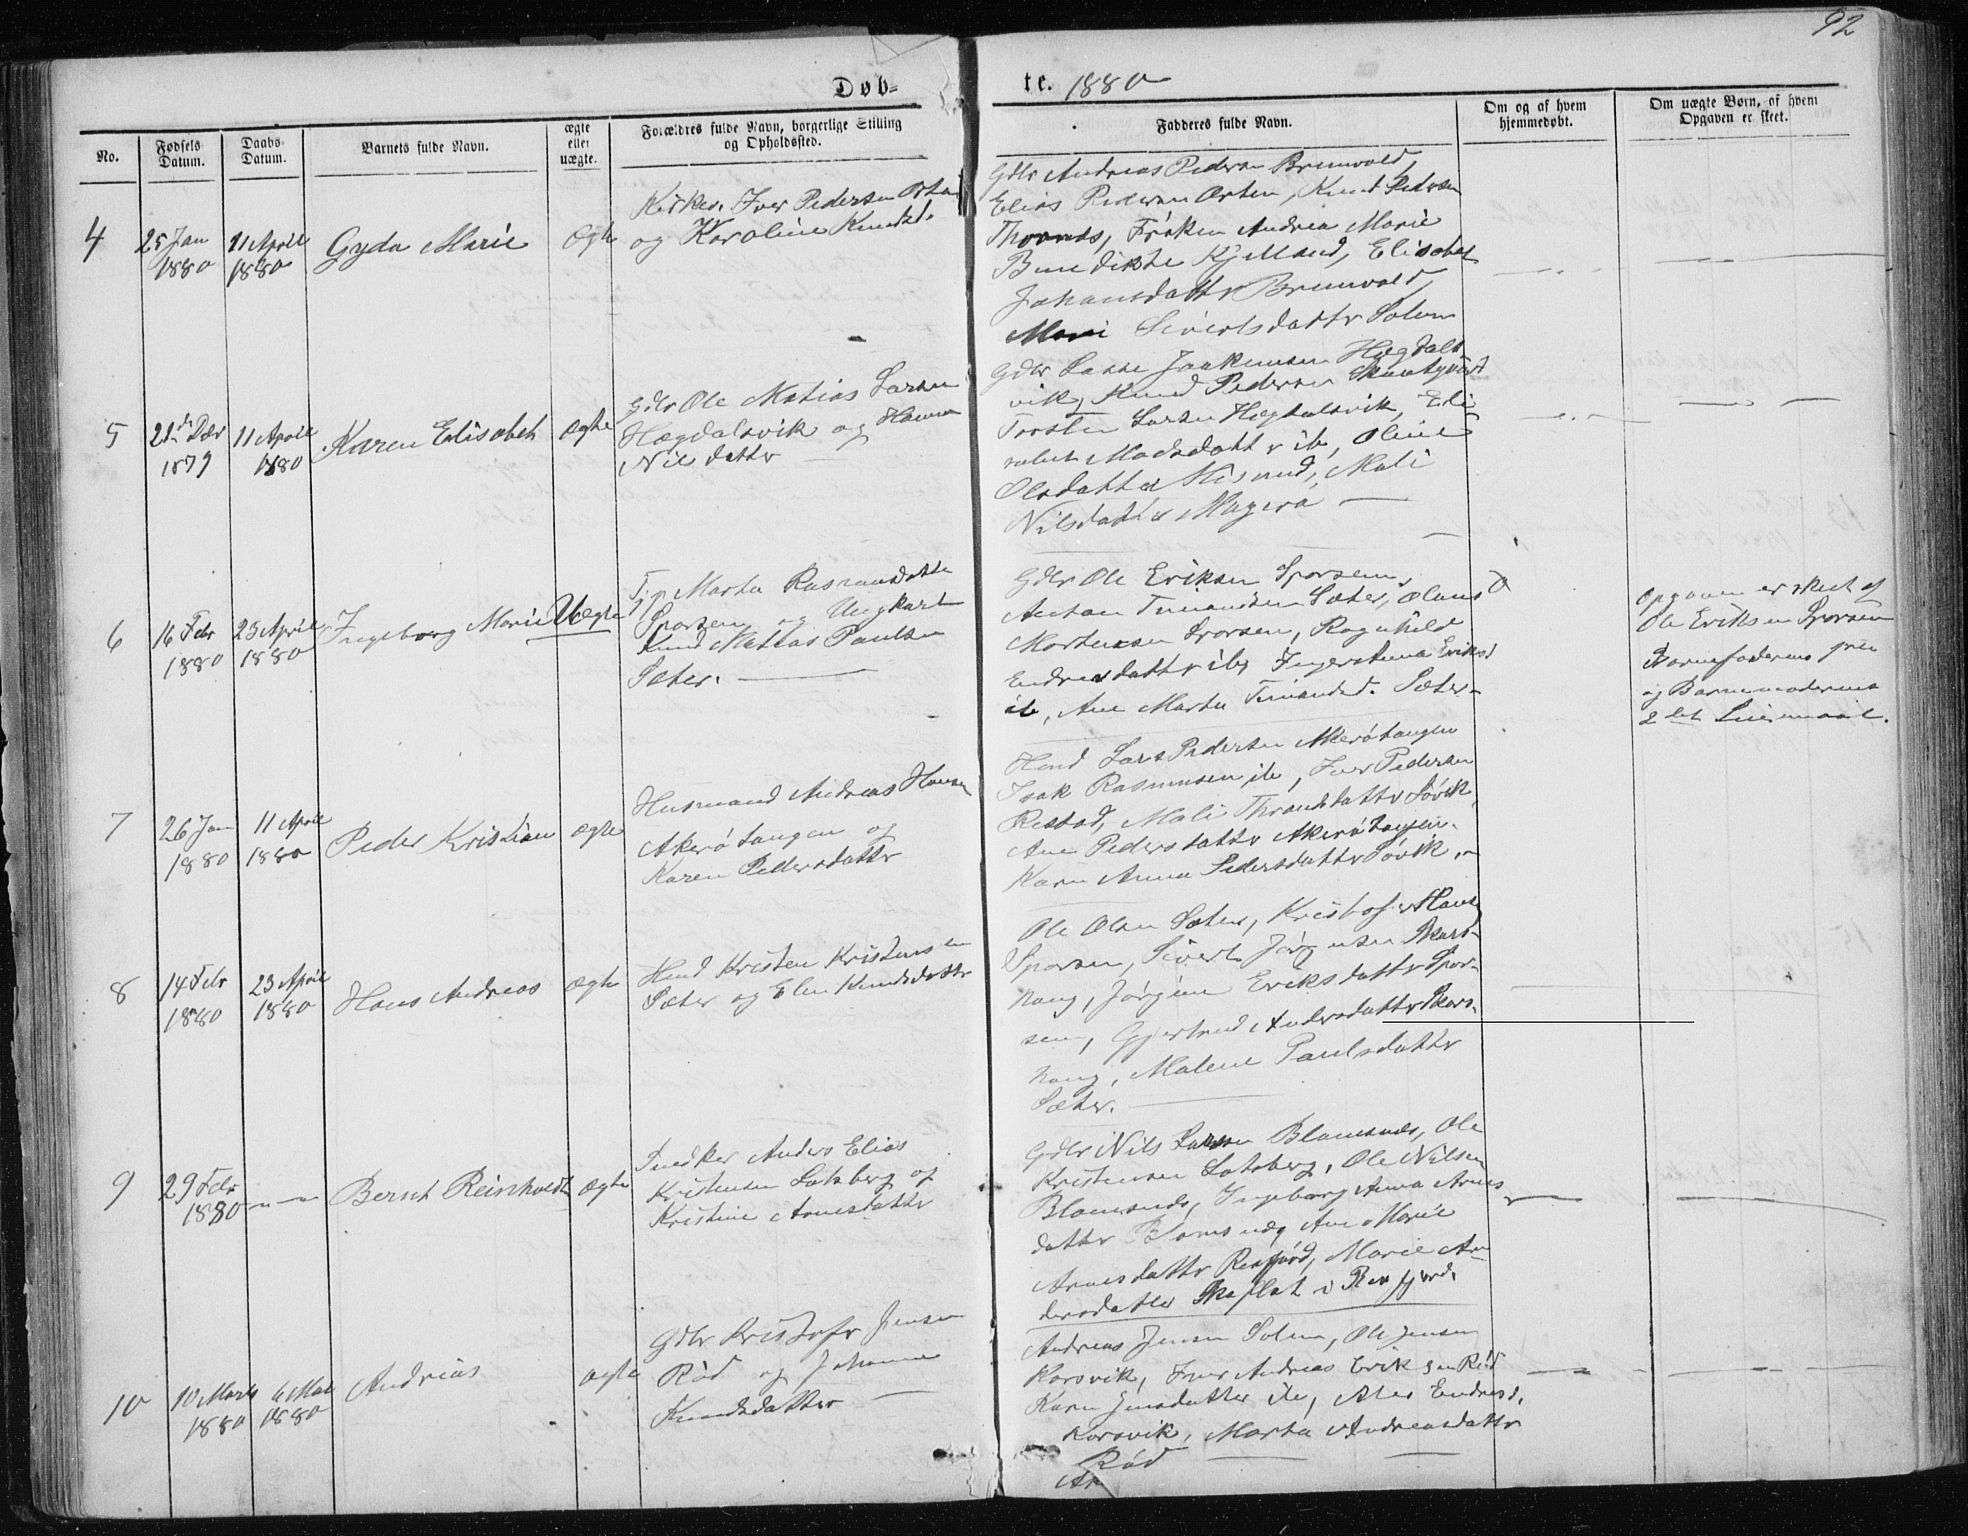 92
Døb= te. 1880
No.
Fødsels Datum.
Daabs Datum.
Barnets fulde Navn.
ægte eller uægte.
Forældres fulde Navn, borgerlige Stilling og Opholdssted.
Fadderes fulde Navn.
Om og af hvem hjemmedøbt.
Om uægte Børn, af hvem Opgaven er skeet.
4
25 Jan 1880
11 April 1880
Gyda Marie
Ægte
Kirkes. Iver Pedersen Orten
og Karoline Knutsd.
Gdbr Andreas Pedersen Brunvold,
Elias Pedersen Orten, Knud Pedersen
Thornes, Frøken Andrea Marie
Benedikte Kjelland, Elisabet
Johansdatter Brunvold,
Mari Sivertsdatter Solem
5
21de Dec 1879
11 April 1880
Karen Elisabeth
Ægte
Gdbr Ole Matias Larsen
Hægdalsvik og Hanna
Nilsdatter
Gdbr Lasse Joakimsen Hægdals
vik, Knud Pedersen
Torsten Larsen Hægdalsvik, Eli
sabet Madsdatter ib, Oline
Olsdatter Misund, Mali
Nilsdatter Magerø
6
16 Febr 1880
23 April 1880
Ingeborg Marie
Uægte
Tjp Marta Rasmusdatter
Sporsem og Ungkarl
Knud Matias Paulsen
Sæter.
Gdbr Ole Eriksen Sporsem,
Anton Sæter, Olaus
Mortensen Sporsem, Ragnhild
Endresdatter ib, Inger Anna Eriksd
ib, Ane Marta Sæter
Opgaven er skeet af
Ole Eriksen Sporsem
Barnefaderens 1ste
og Barnemoderens
2det Leiermaal.
7
26 Jan 1880
11 April 1880
Peder Kristian
Ægte
Husmand Andreas Hansen
Akerøtangen og
Karen Pedersdatter
Hmd Lars Pedersen Akerøtangen
Isak Rasmussen ib, Iver Pedersen
Restad, Mali Throndsdatter Søvik,
Ane Pedersdatter Akerøtangen.
Karen Anna Pedersdatter Søvik
8
14 Febr 1880
23 April 1880
Hans Andreas
Ægte
Hmd Kristen Kristensen
Sæter og Elen Knudsdatter
Ole Olsen Sæter, Kristofer Hansen
Sporsem, Sivert Jørgensen Skars-
haug, Jørgine Eriksdatter Spor-
sem, Gjertrud Andersdatter Skars-
haug, Malene Paulsdatter
Sæter.
9
29 Febr 1880
— " —
Bernt Reinholdt
Ægte
Snedker Anders Elias
Kristensen Sotsberg og
Kristine Arnesdatter
Gdbr Nils Larsen Blamsnes, Ole
Kristensen Sotsberg, Ole Nilsen
Blamsnes, Ingeborg Anna Arnes
datter Blamsnes Ane Marie
Arnesdatter Rensfjord, Marie An
dersdatter Skaflet i Rensfjord.
10
10 Marts 1880
6 Mai 1880
Andreas
Ægte
Gdbr Kristofer Jensen
Rød og Johanna
Knudsdatter
Andreas Jensen Solem, Ole Jensen
Korsvik, Iver Andreas Eriksen Rød
Karen Jensdatter ib, Endresd.
Korsvik, Marta Andreasdatter
Rød